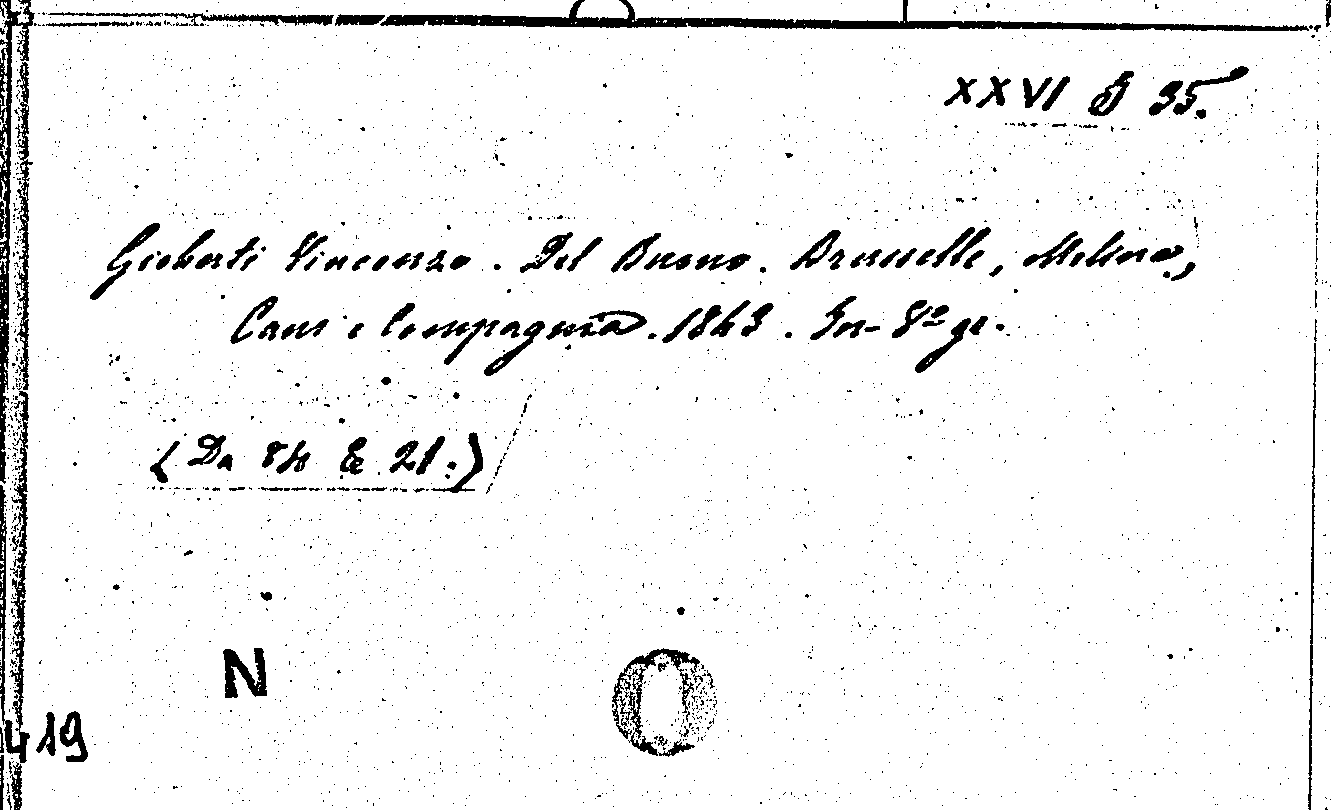 XXVI 35.
Gioberti Vincenzo. Del Buono. Brusselle, Meline,
Cans e Compagnia. 1843. In-8º gr.
(Da 84 E 21.)
N
419